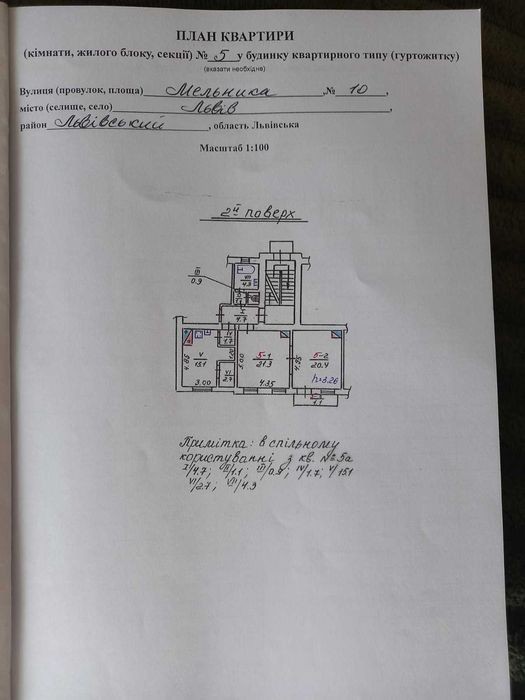 ПЛАН КВАРТИРИ
(кімнати, жилого блоку, секції) № 5 у будинку квартирного типу (гуртожитку)
(вказати необхідне)
Вулиця (провулок, площа) Мельника , № 10 ,
місто (селище, село) Львів ,
район Львівський , область Львівська
Масштаб 1:100
2й поверх
III
0.9
VII
4.9
I
4.7
IV
1.7
V
15.1
4.85
3.00
VI
2.7
5-1
21.3
5.00
4.35
5-2
20.4
4.85
h=3.26
1.1
Примітка: в спільному
користуванні з кв. №5а
I/4.7; II/1.1; III/0.9; IV/1.7; V/15.1
VI/2.7; VII/4.9